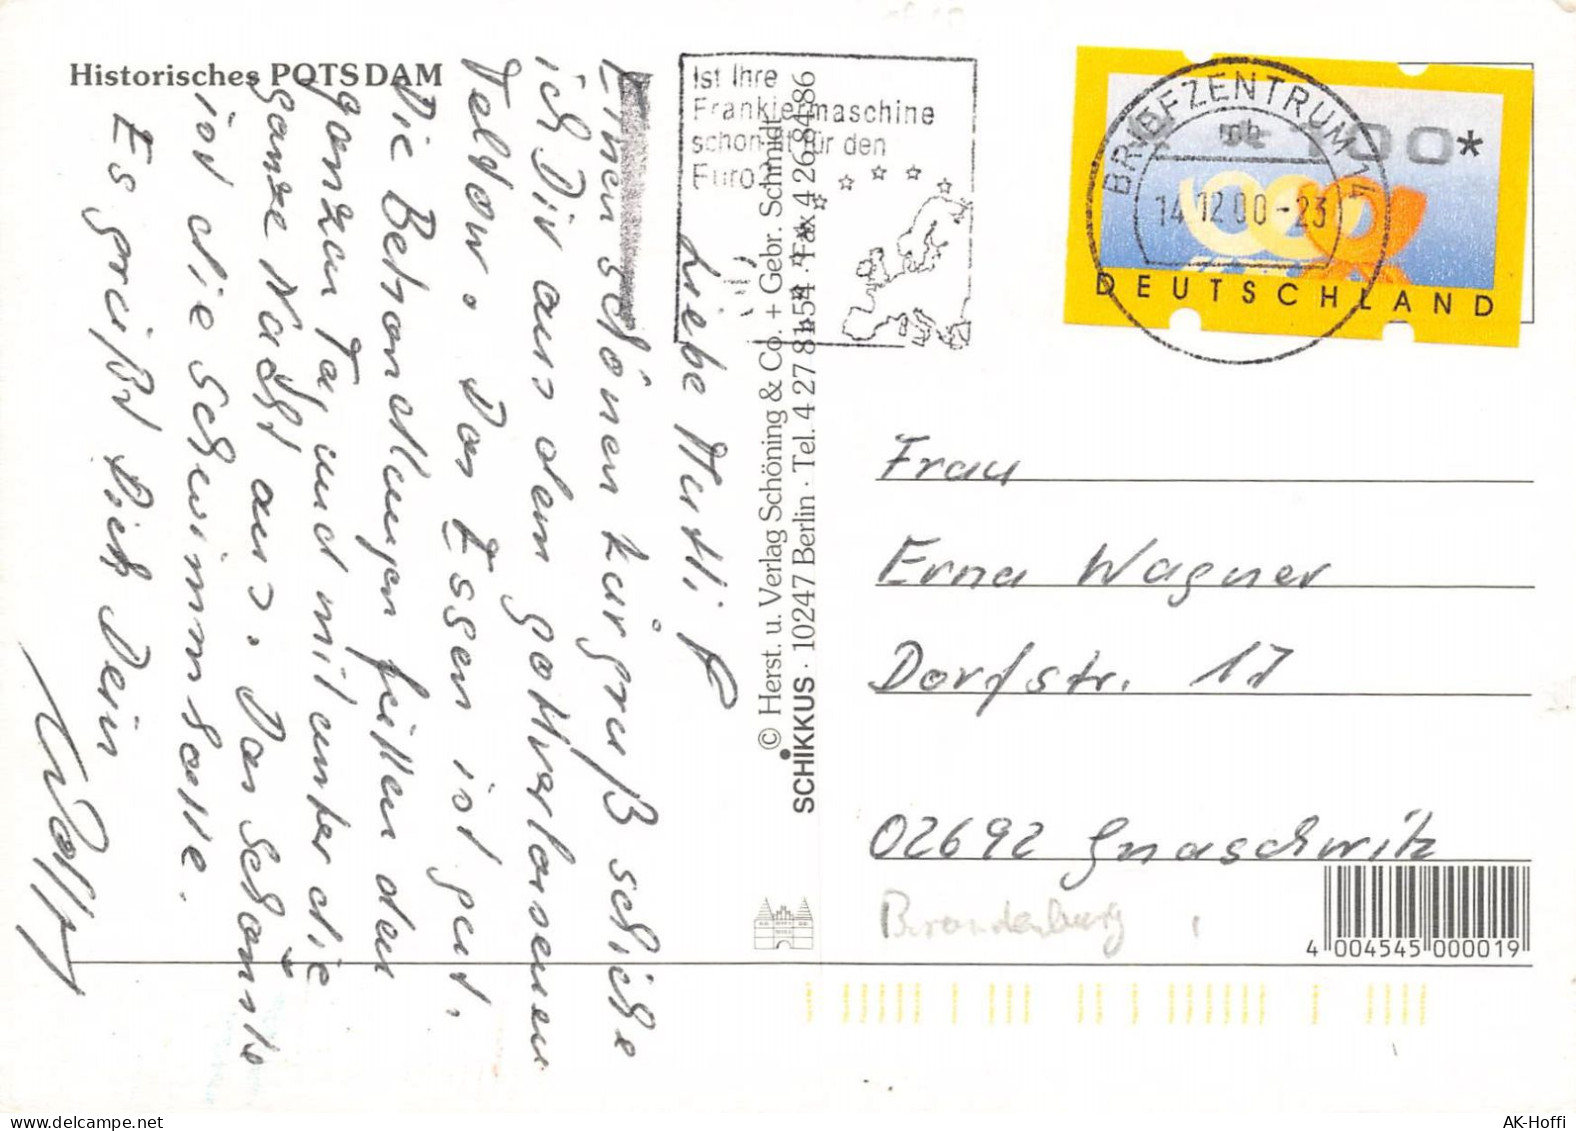 Historisches POTSDAM
Liebe Mutti!
Einen schönen Kurgruß schicke
ich Dir aus dem gottverlassenen
Teltow. Das Essen ist gut.
Die Behandlungen füllen den
ganzen Tag und mitunter die
ganze Nacht aus. Das schönste
ist die Schwimmhalle.
Es grüßt Dich Dein
© Herst. u. Verlag Schöning & Co. + Gebr. Schmidt
SCHIKKUS · 10247 Berlin · Tel. 4 27 81 54 · Fax 4 26 84 86
Ist Ihre
Frankiermaschine
schon fit für den
Euro?
BRIEFZENTRUM 14
mb
14.12.00-23
100*
DEUTSCHLAND
Frau
Erna Wagner
Dorfstr. 17
02692 Gnaschwitz
Brandenburg
4 004545 000019
AK-Hoffi